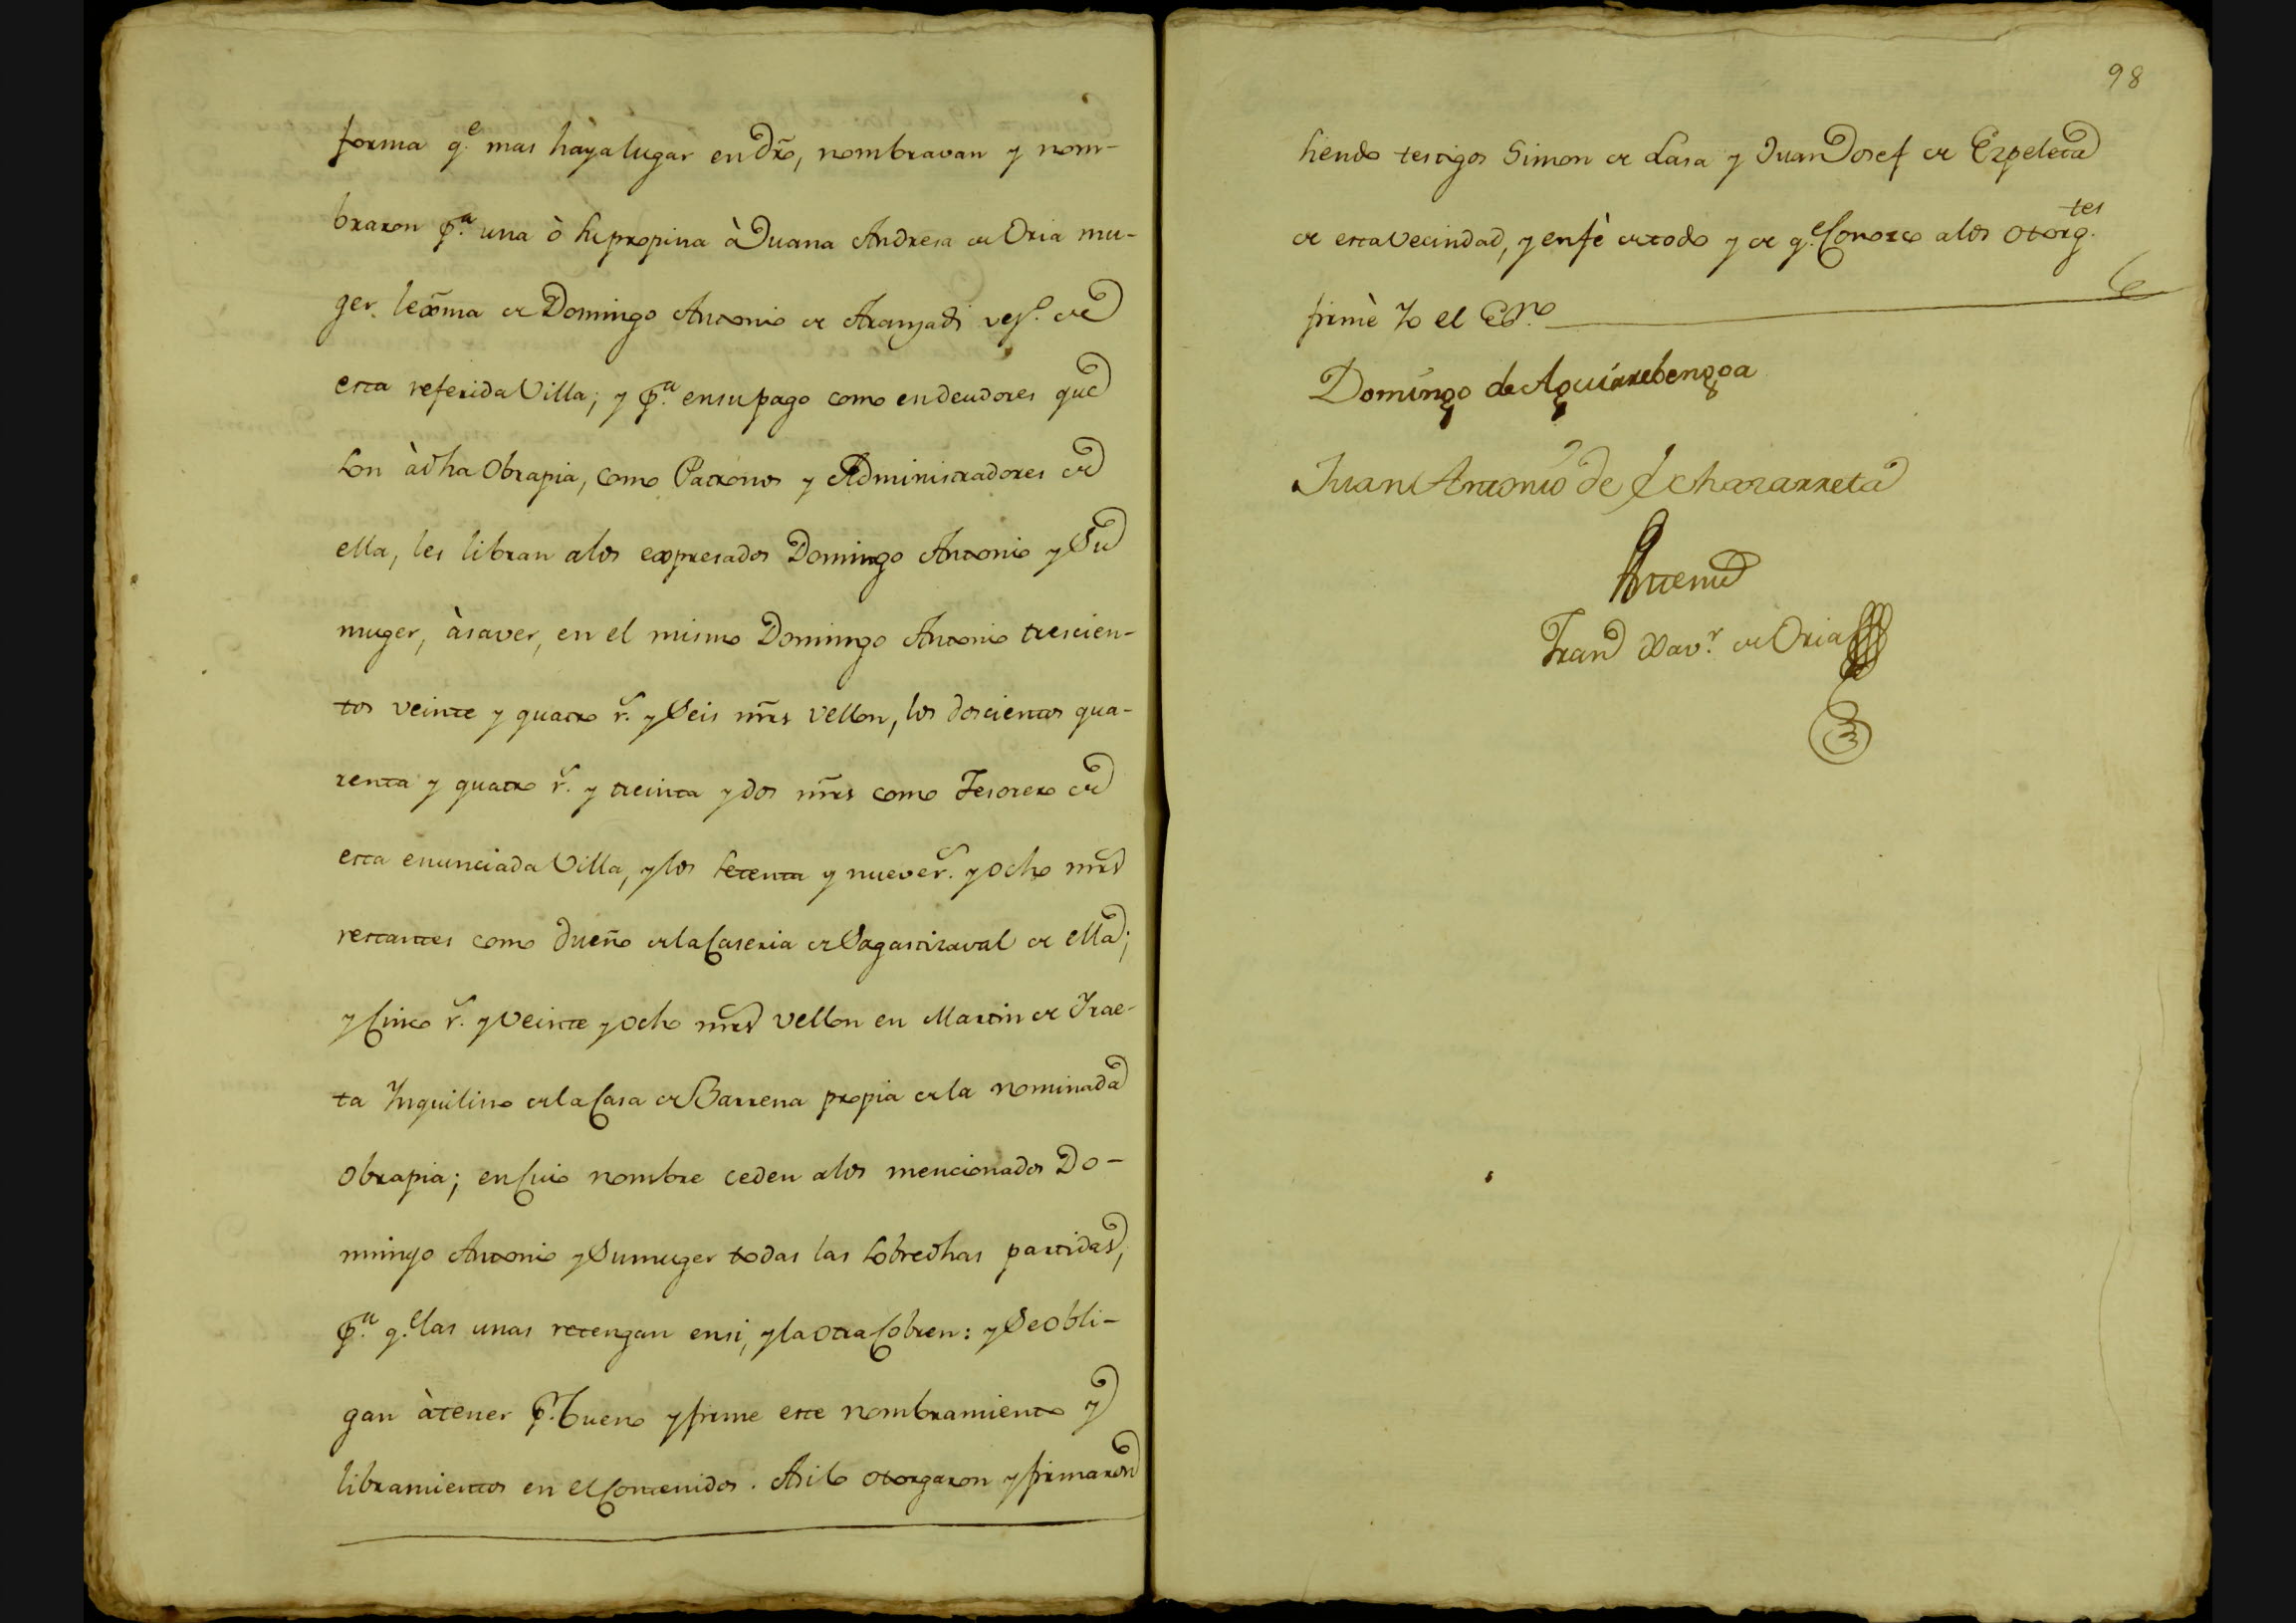 forma q.e mas haya lugar en dr̃o, nombravan y nom-
braron p.a una ò su propina à Juana Andresa de Oria mu-
ger lexma de Domingo Antonio de Aranzadi vez.o de
esta referida Villa; y p.a en su pago como en deudores que
son à dha Obrapia, como Patronos y Administradores de
ella, les libran a los expresados Domingo Antonio y Su
muger, à saver, en el mismo Domingo Antonio trescien-
tos veinte y quatro r.s y Seis mrs vellon, los doscientos qua-
renta y quatro r.s y treinta y dos mrs como Tesorero de
esta enunciada Villa, y los setenta y nueve r.s y ocho mrs
restantes como dueño de la Caseria de Sagastizaval de ella;
y Cinco r.s y Veinte y ocho mrs vellon en Martin de Irae-
ta Inquilino de la Casa de Barrena propia de la nominada
Obrapia; en Cuio nombre ceden a los mencionados Do-
mingo Antonio y Su muger todas las sobre dhas partidas,
p.a q.e las unas retengan en si, y la otra Cobren: y Se obli-
gan à tener p.r bueno y firme este nombramiento y
libramientos en el Contenidos. Asi lo otorgaron y firmaron
98
siendo testigos Simon de Lasa y Juan Josef de Ezpeleta
de esta Vecindad, y en fè de todo y de q.e Conozco a los otorg.tes
firmè Yo el Es.no
Domingo de Aguirrebengoa
Juan Antonio de Echazarreta
Ante mi
Fran Xav.r de Oria